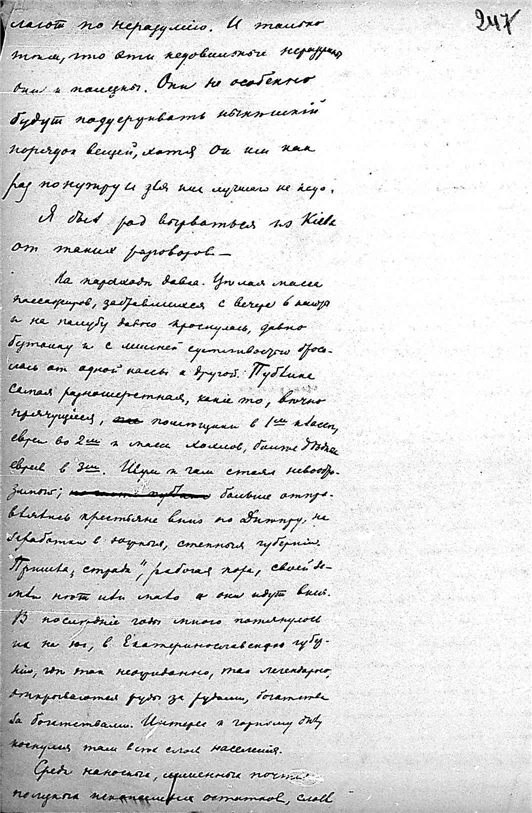 247
лают по неразумію. И только
тем, что эти недовольные неразумны,
они и полезны. Они не особенно
будут поддерживать нынѣшній
порядок вещей, хотя он им как
раз по нутру и для них лучшаго не надо.
Я был рад вырваться из Кіева
от таких разговоров —
На пароходе давка. Цѣлая масса
пассажиров, забравшихся с вечера в каюты
и на палубу давно проснулась, давно
и с суетливостью броса-
лась от одной кассы к другой. Публика
самая разношерстная, какіе то, вѣчно
прячущіеся, помѣщики в 1ом классѣ,
евреи во 2ом и масса хохлов, болѣе бѣдных
евреев в 3ем. Шум и гам стоял невообра-
зимый; больше отпра-
влялись крестьяне вниз по Днѣпру, на
заработки в южныя, степныя губерніи.
Пришла „страда“, рабочая пора, своей зе-
мли нѣт или мало и они идут вниз.
В послѣдніе годы много потянулось
их на юг, в Екатеринославскую губер-
нію, гдѣ так неожиданно, так легендарно,
открываются руды за рудами, богатства
за богатствами. Интерес к горному дѣлу
коснулся там всѣх слоев населенія.
Среди наносных, лишенных почти
полезных ископаемых остатков, слоев